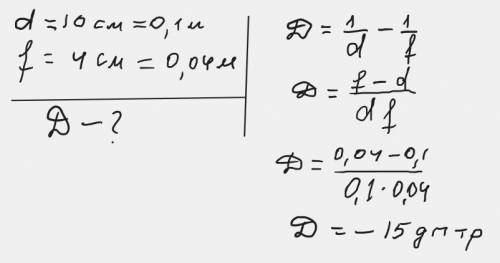 d = 10 см = 0,1 м
f = 4 см = 0,04 м
D - ?
D = 1/d - 1/f
D = (f - d)/(d f)
D = (0,04 - 0,1)/(0,1 · 0,04)
D = - 15 дптр